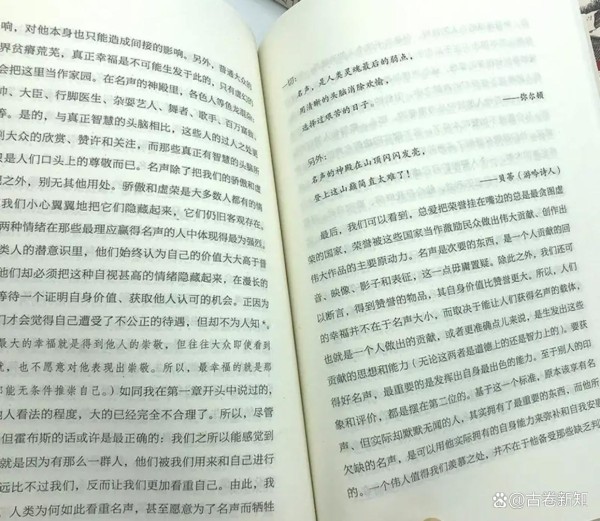 响，对他本身也只能造成间接的影响。另外，普通大众的
界贫瘠荒芜，真正幸福是不可能发生于此的，只有虚幻的
会把这里当作家园。在名声的神殿里，各色人等鱼龙混杂：
帅、大臣、行脚医生、杂耍艺人、舞者、歌手、百万富翁，
等。是的，与真正智慧的头脑相比，这些人的过人之处
到大众的欣赏、赞许和关注，而那些真正有智慧的头脑所
只是人们口头上的尊敬而已。名声除了把我们的骄傲和虚
之外，别无其他用处。骄傲和虚荣是大多数人都有的情
我们小心翼翼地把它们隐藏起来，它们仍旧客观存在。
两种情绪在那些最理应赢得名声的人中体现得最为强烈。
类人的潜意识里，他们始终认为自己的价值大大高于普
他们却必须把这种自视甚高的情绪隐藏起来，在漫长的
等待一个证明自身价值、获取他人认可的机会。正因为
们才会觉得自己遭受了不公正的待遇，但却不为人知。
最大的幸福就是得到他人的崇敬，但往往大众即使看到
，也不愿意对他表现出崇敬。所以，最幸福的就是那
都能无条件推崇自己。）如同我在第一章开头中说过的，
他人看法的程度，大的已经完全不合理了。所以，尽管
但霍布斯的话或许是最正确的：我们之所以能感到
就是因为有那么一群人，他们被我们用来和自己进行
远比不过我们，反而让我们更加看重自己。由此，我
、人类为何如此看重名声，甚至愿意为了名声而牺牲
一切：
名声，是人类灵魂最后的弱点，
用清晰的头脑消除欢愉，
选择过艰苦的日子。
——弥尔顿
另外：
名声的神殿在山顶闪闪发亮，
登上这山巅简直太难了！
——贝蒂（游吟诗人）
最后，我们可以看到，总爱把荣誉挂在嘴边的总是最贪图虚
荣的国家，荣誉被这些国家当作激励民众做出伟大贡献、创作出
伟大作品的主要原动力。名声是次要的东西，是一个人贡献的回
音、映像、影子和表征，这一点毋庸置疑。除此之外，我们还可
以断言，得到赞誉的物品，其自身价值比赞誉更大。所以，人们
的幸福并不在于名声大小，而取决于能让人们获得名声的载体，
也就是一个人做出的贡献，或者更准确点儿来说，是生发出这些
贡献的思想和能力（无论这两者是道德上的还是智力上的）。要获
得好名声，最重要的是发挥出自身最出色的能力。至于别人的印
象和评价，都是摆在第二位的。基于这一个标准，原本该享有名
声、但实际却默默无闻的人，其实拥有了最重要的东西，而他所
欠缺的名声，是可以用他实际拥有的自身能力来弥补和自我安慰
的。一个伟人值得我们羡慕之处，并不在于他备受那些缺乏判
古卷新知